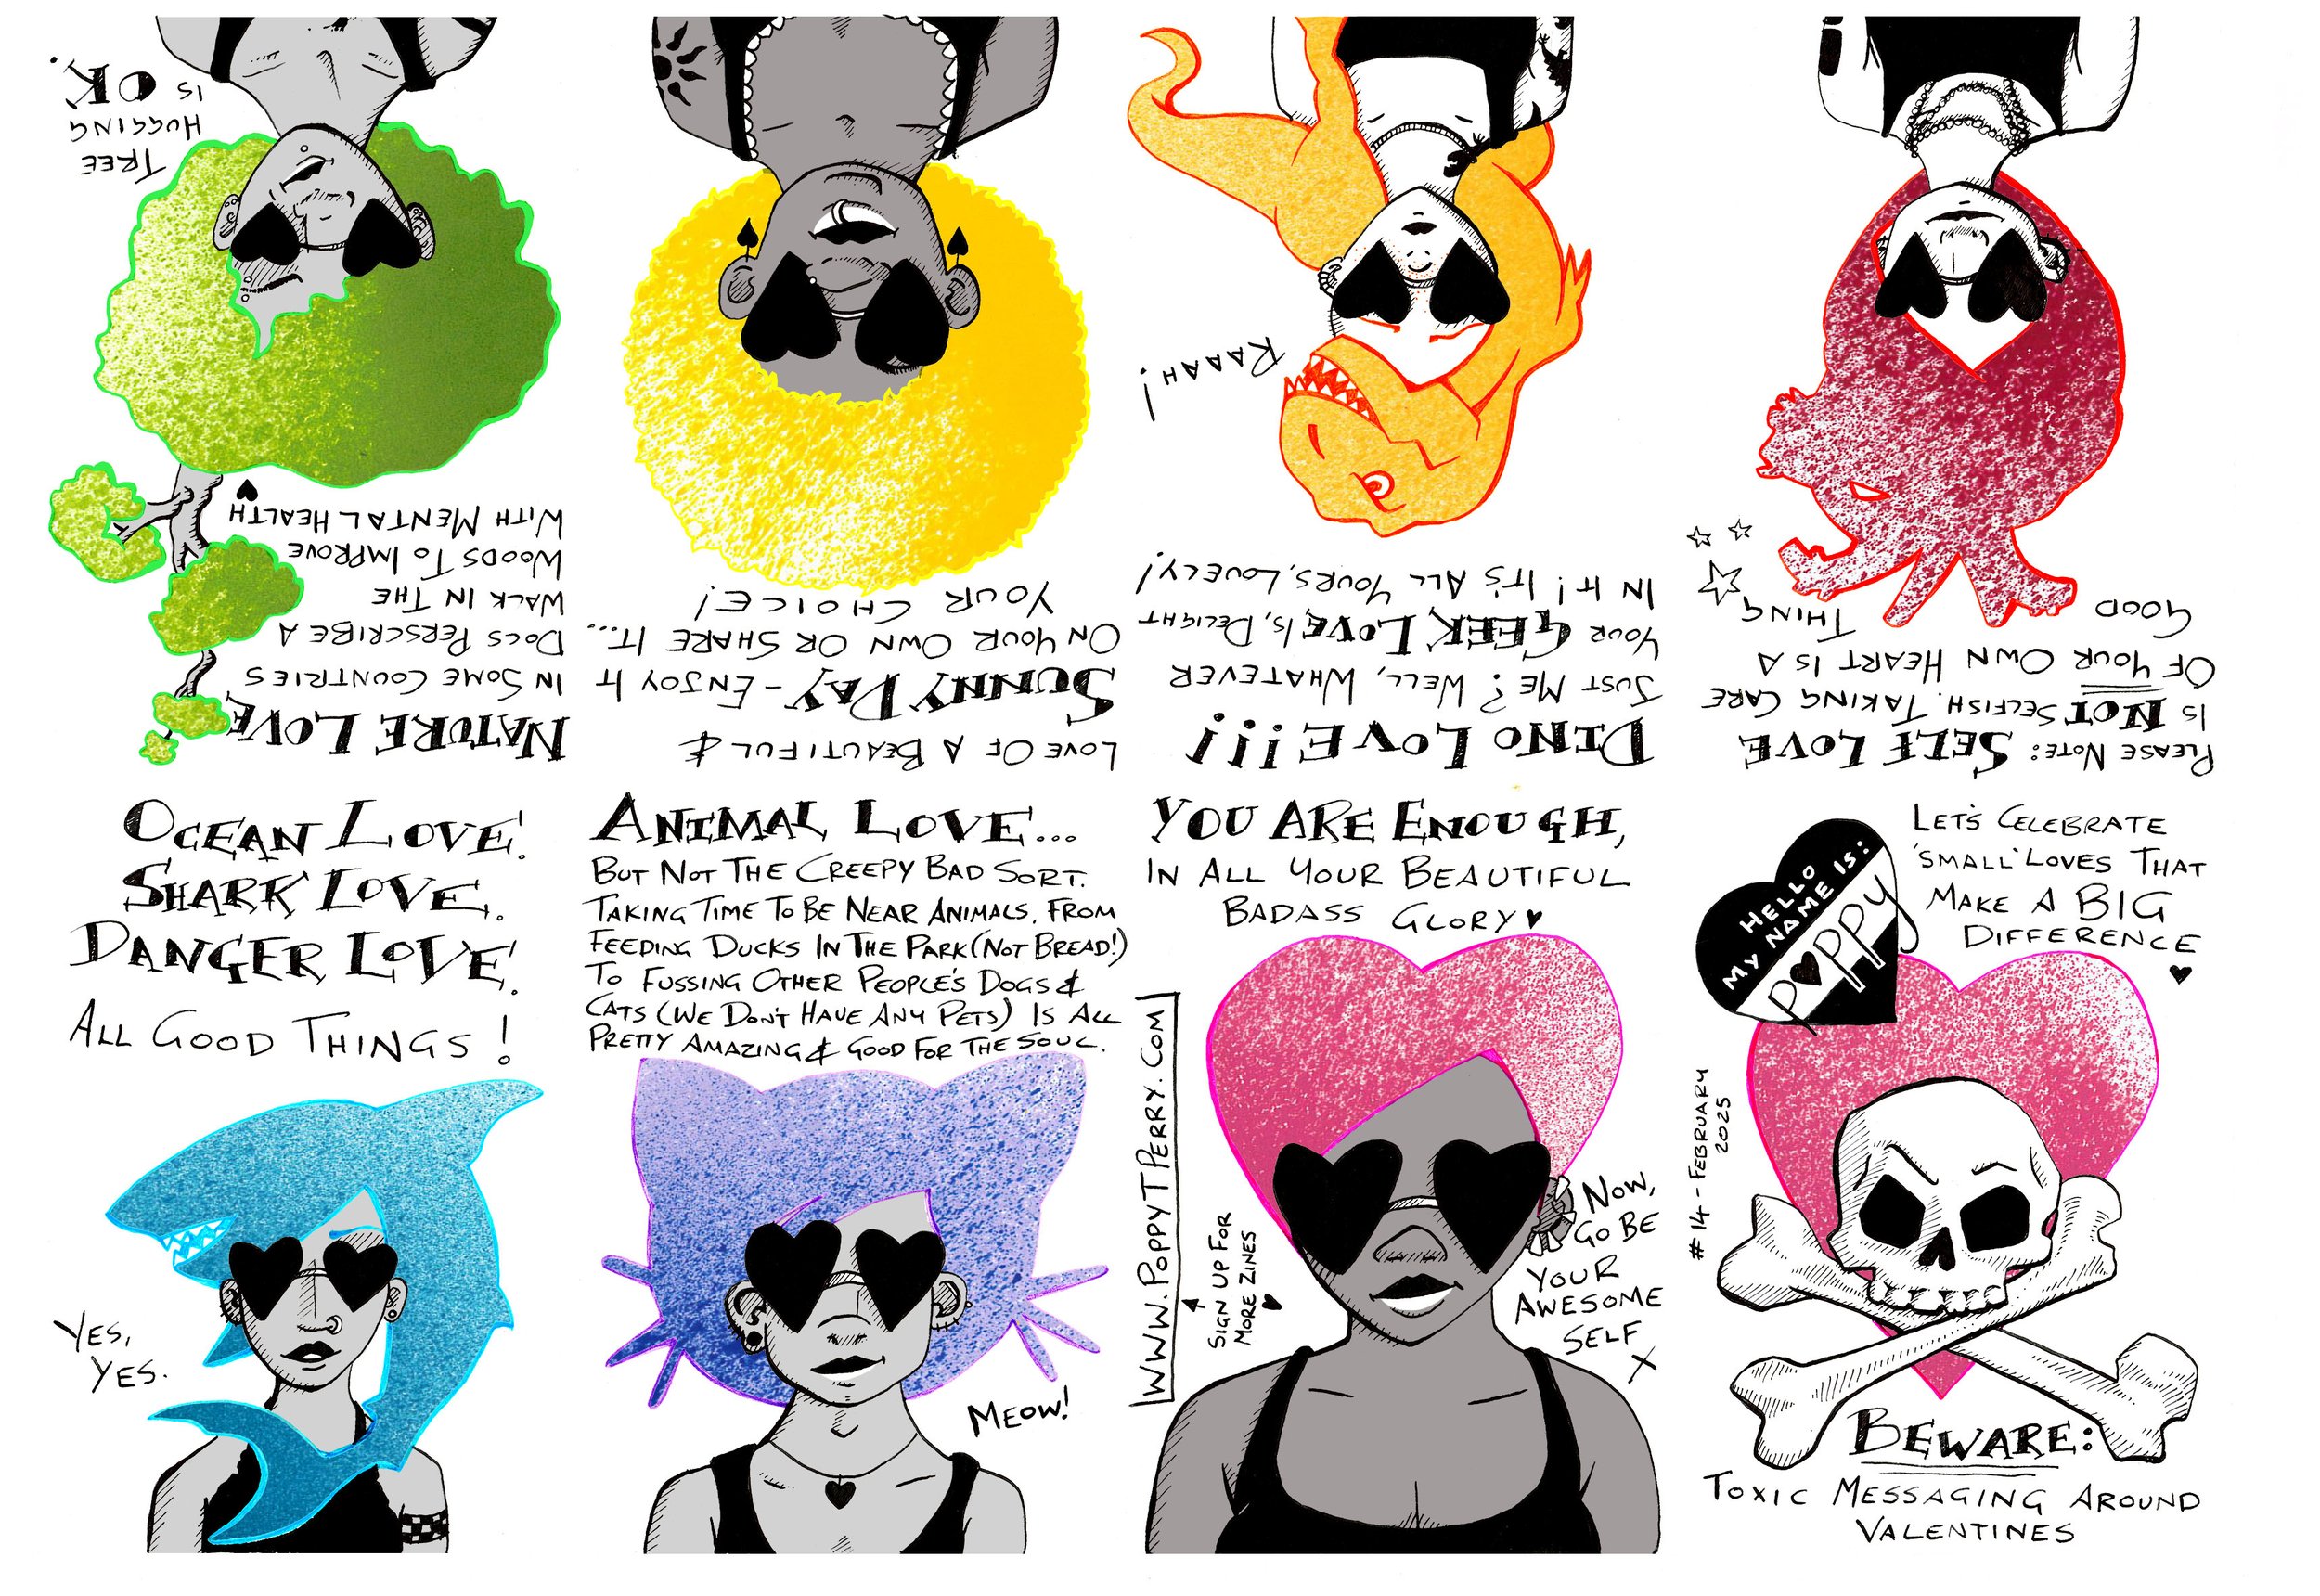 HELLO
MY NAME IS:
POPPY
LET'S CELEBRATE
'SMALL' LOVES THAT
MAKE A BIG
DIFFERENCE
#14 - FEBRUARY
2025
BEWARE:
TOXIC MESSAGING AROUND
VALENTINES
PLEASE NOTE: SELF LOVE
IS NOT SELFISH. TAKING CARE
OF YOUR OWN HEART IS A
GOOD THING
DINO LOVE!!!
JUST ME? WELL, WHATEVER
YOUR GEEK LOVE IS, DELIGHT
IN IT! IT'S ALL YOURS, LOVELY!
RAAAH!
LOVE OF A BEAUTIFUL &
SUNNY DAY - ENJOY IT
ON YOUR OWN OR SHARE IT...
YOUR CHOICE!
NATURE LOVE
IN SOME COUNTRIES
DOCS PERSCRIBE A
WALK IN THE
WOODS TO IMPROVE
WITH MENTAL HEALTH
TREE
HUGGING
IS OK.
OCEAN LOVE.
SHARK LOVE.
DANGER LOVE.
ALL GOOD THINGS!
YES,
YES.
ANIMAL LOVE...
BUT NOT THE CREEPY BAD SORT.
TAKING TIME TO BE NEAR ANIMALS, FROM
FEEDING DUCKS IN THE PARK (NOT BREAD!)
TO FUSSING OTHER PEOPLE'S DOGS &
CATS (WE DON'T HAVE ANY PETS) IS ALL
PRETTY AMAZING & GOOD FOR THE SOUL.
MEOW!
YOU ARE ENOUGH,
IN ALL YOUR BEAUTIFUL
BADASS GLORY
WWW.POPPYTPERRY.COM
SIGN UP FOR
MORE ZINES
NOW,
GO BE
YOUR
AWESOME
SELF
X